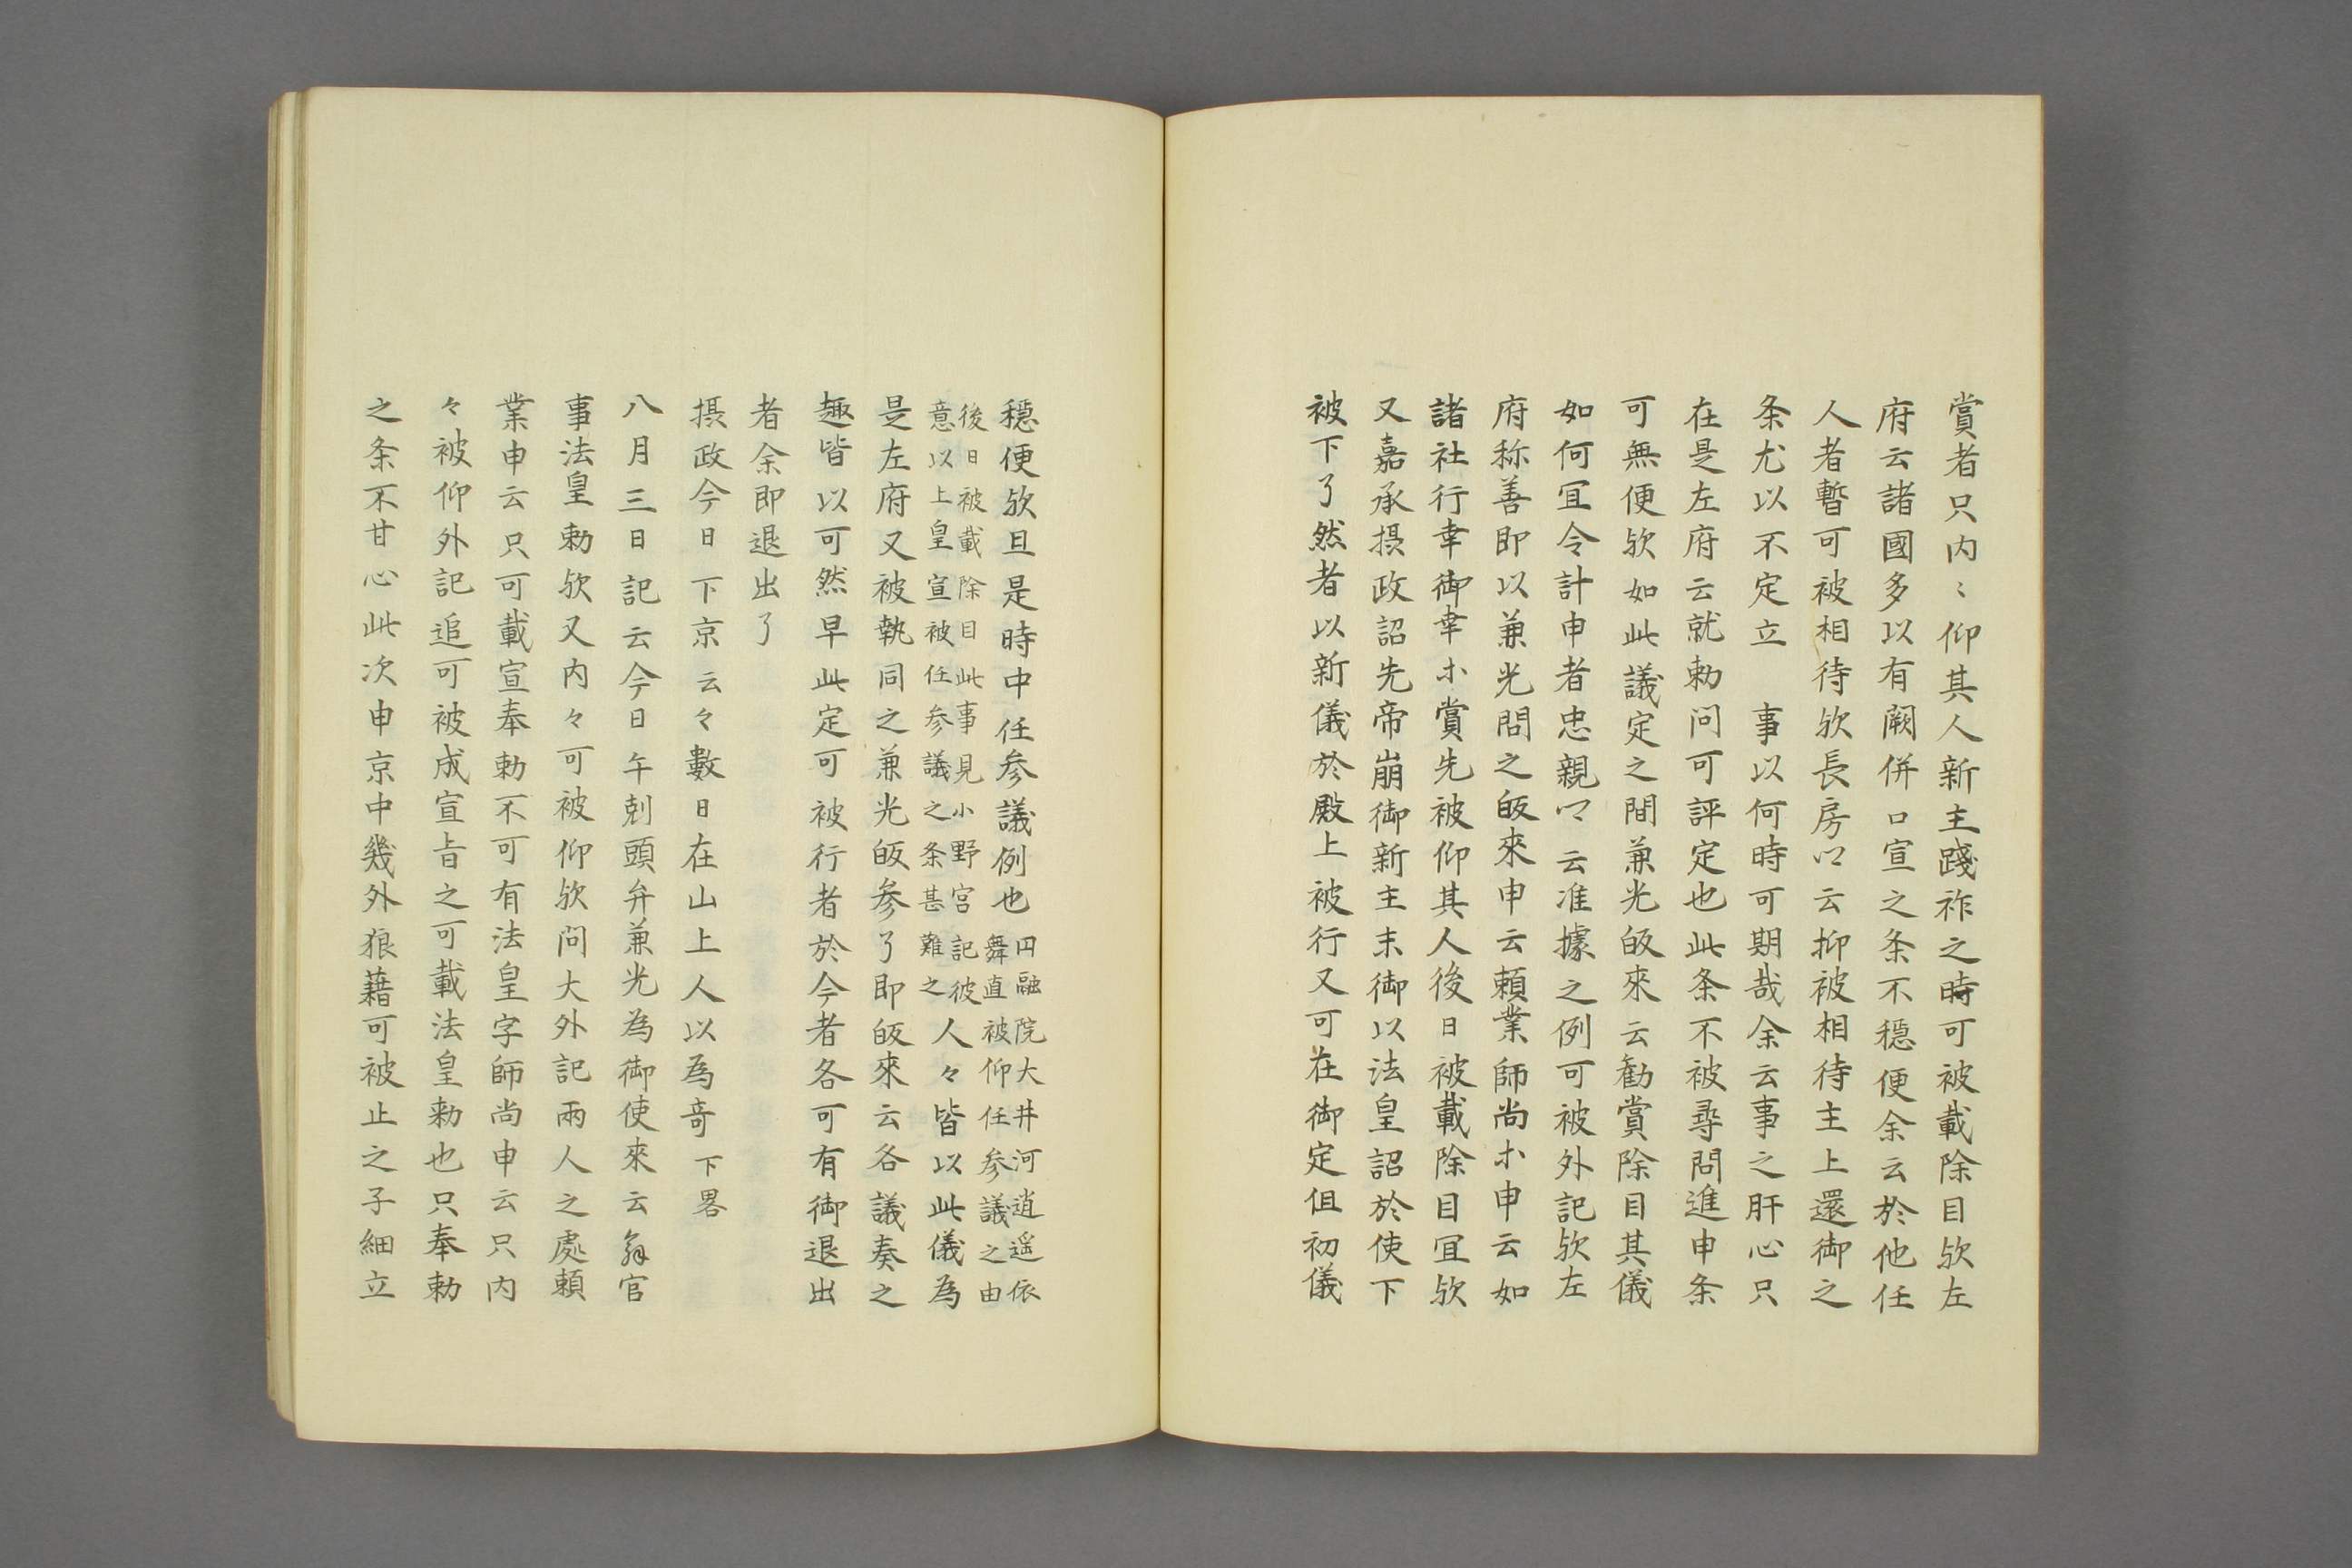 賞者只内〻仰其人新主踐祚之時可被載除目欤左
府云諸國多以有闕併口宣之条不穏便余云於他任
人者暫可被相待欤長房卿云抑被相待主上還御之
条尤以不定立　事以何時可期哉余云事之肝心只
在是左府云就勅問可評定也此条不被尋問進申条
可無便欤如此議定之間兼光皈來云勧賞除目其儀
如何冝令計申者忠親卿云准據之例可被外記欤左
府称善即以兼光問之皈來申云頼業師尚ホ申云如
諸社行幸御幸ホ賞先被仰其人後日被載除目冝欤
又嘉承摂政詔先帝崩御新主未御以法皇詔於使下
被下了然者以新儀於殿上被行又可在御定但初儀
穏便欤且是時中任参議例也円融院大井河逍遥依
舞直被仰任参議之由
後日被載除目此事見小野宮記彼
意以上皇宣被任参議之条甚難之人々皆以此儀為
是左府又被執同之兼光皈参了即皈來云各議奏之
趣皆以可然早此定可被行者於今者各可有御退出
者余即退出了
摂政今日下京云々數日在山上人以為奇下畧
八月三日記云今日午剋頭弁兼光為御使來云解官
事法皇勅欤又内々可被仰欤問大外記兩人之處頼
業申云只可載宣奉勅不可有法皇字師尚申云只内
々被仰外記追可被成宣旨之可載法皇勅也只奉勅
之条不甘心此次申京中幾外狼藉可被止之子細立